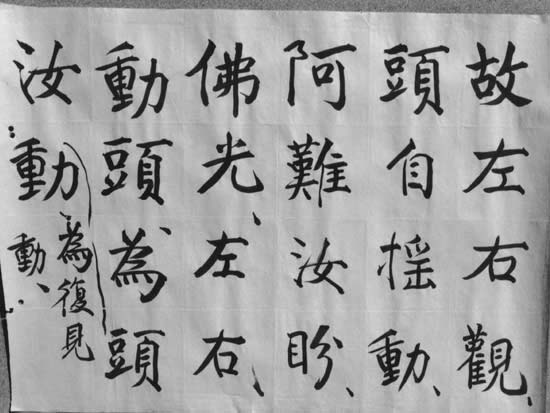 故左右觀、
頭自搖動、
阿難汝盼、
佛光、左右、
動頭為頭
汝動
為復見
動、、